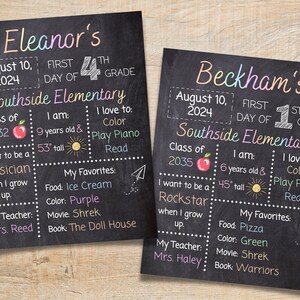 Eleanor's
August 10,
2024
FIRST
DAY OF
4TH
GRADE
Southside Elementary
I am:
9 years old &
53" tall
I love to:
Color
Play Piano
Read
to be a
when I
grow
up.
My Favorites:
Food: Ice Cream
Color: Purple
Movie: Shrek
Book: The Doll House
Teacher:
Reed
Beckham's
August 10,
2024
FIRST
DAY OF
Southside Elementary
Class of
2035
I am:
6 years old &
45" tall
I love to:
Color
Play Piano
Read
I want to be a
Rockstar
when I
grow
up.
My Favorites:
Food: Pizza
Color: Green
Movie: Shrek
Book: Warriors
My Teacher:
Mrs. Haley